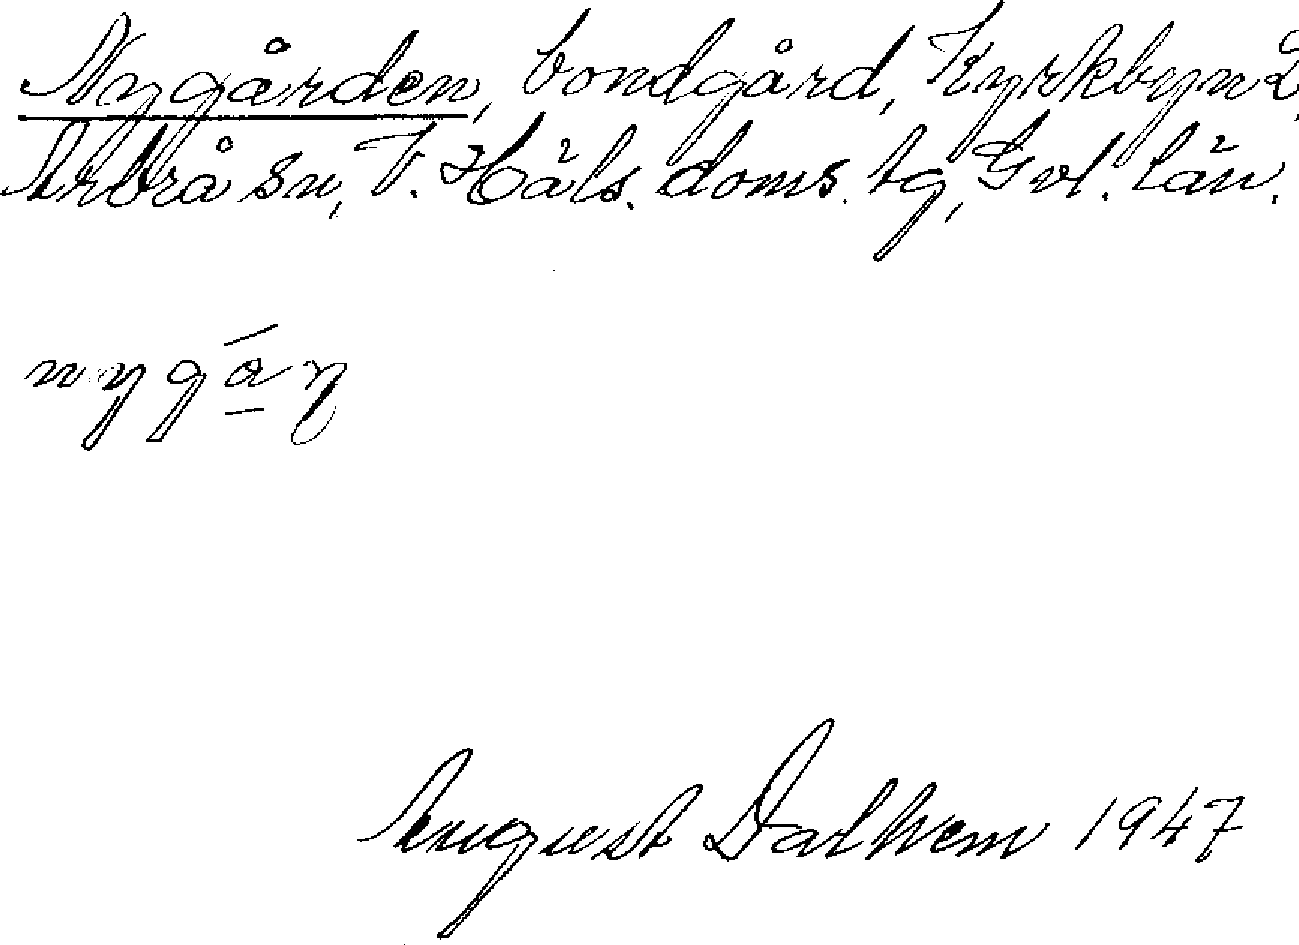 Nygården, bondgård, Kyrkbyn 2,
Arbrå sn, V. Häls. doms. tg, Gvl. län.
nygá̱ŋ
August Dalhem 1947